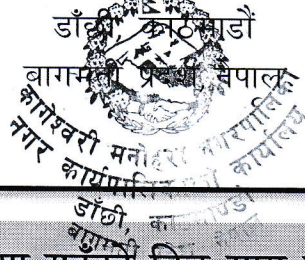 डाँछी, काठमाडौं
बागमती प्रदेश, नेपाल
कागेश्वरी मनोहरा नगरपालिका
नगर कार्यपालिकाको कार्यालय
डाँछी, काठमाण्डौ
बागमती प्रदेश, नेपाल